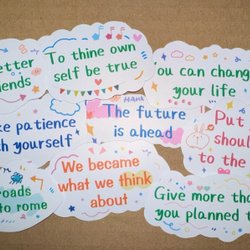 etter
iends
To thine own
self be true
ou can chang
your life
ke patience
th yourself
The future
is ahead
Put
shoul
to the
oads
to rome
We became
what we think
about
Give more tha
you planned t